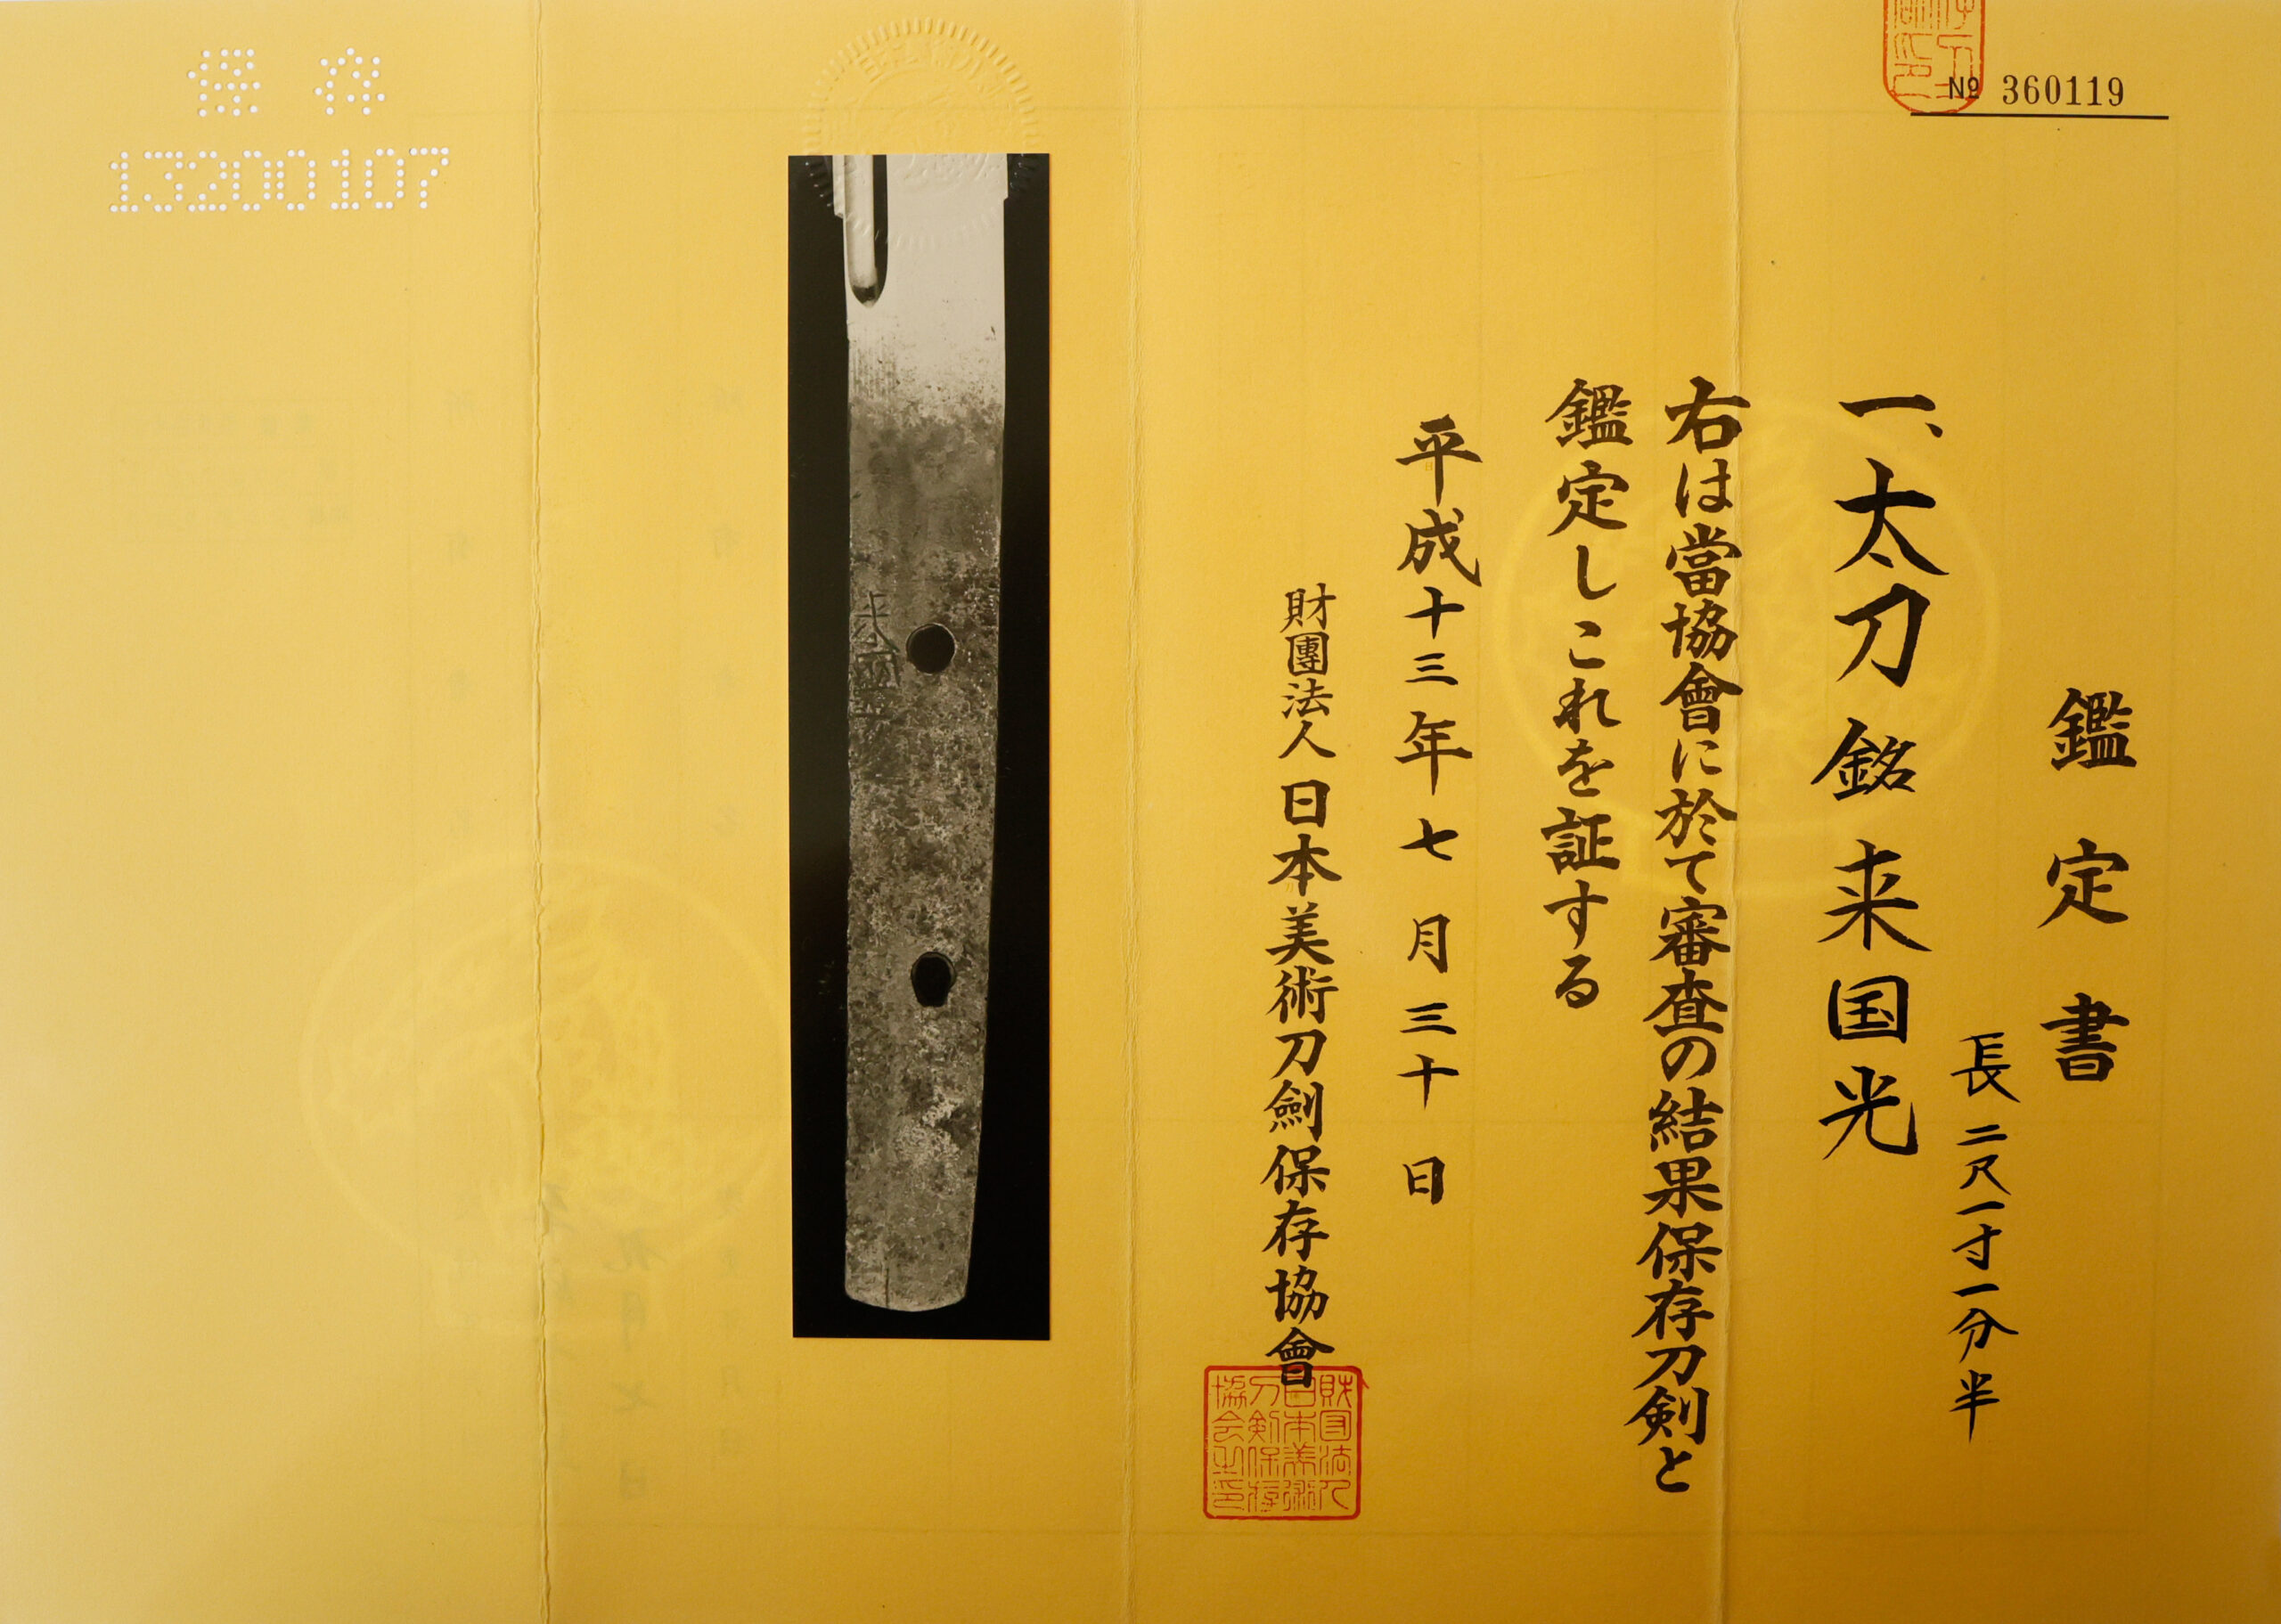 № 360119
鑑定書
長二尺一寸一分半
一、太刀 銘 来国光
右は當協會に於て審査の結果保存刀剣と
鑑定しこれを証する
平成十三年七月三十日
財團法人 日本美術刀劍保存協會
財団法人
日本美術
刀剣保存
協会之印
保存
13200107